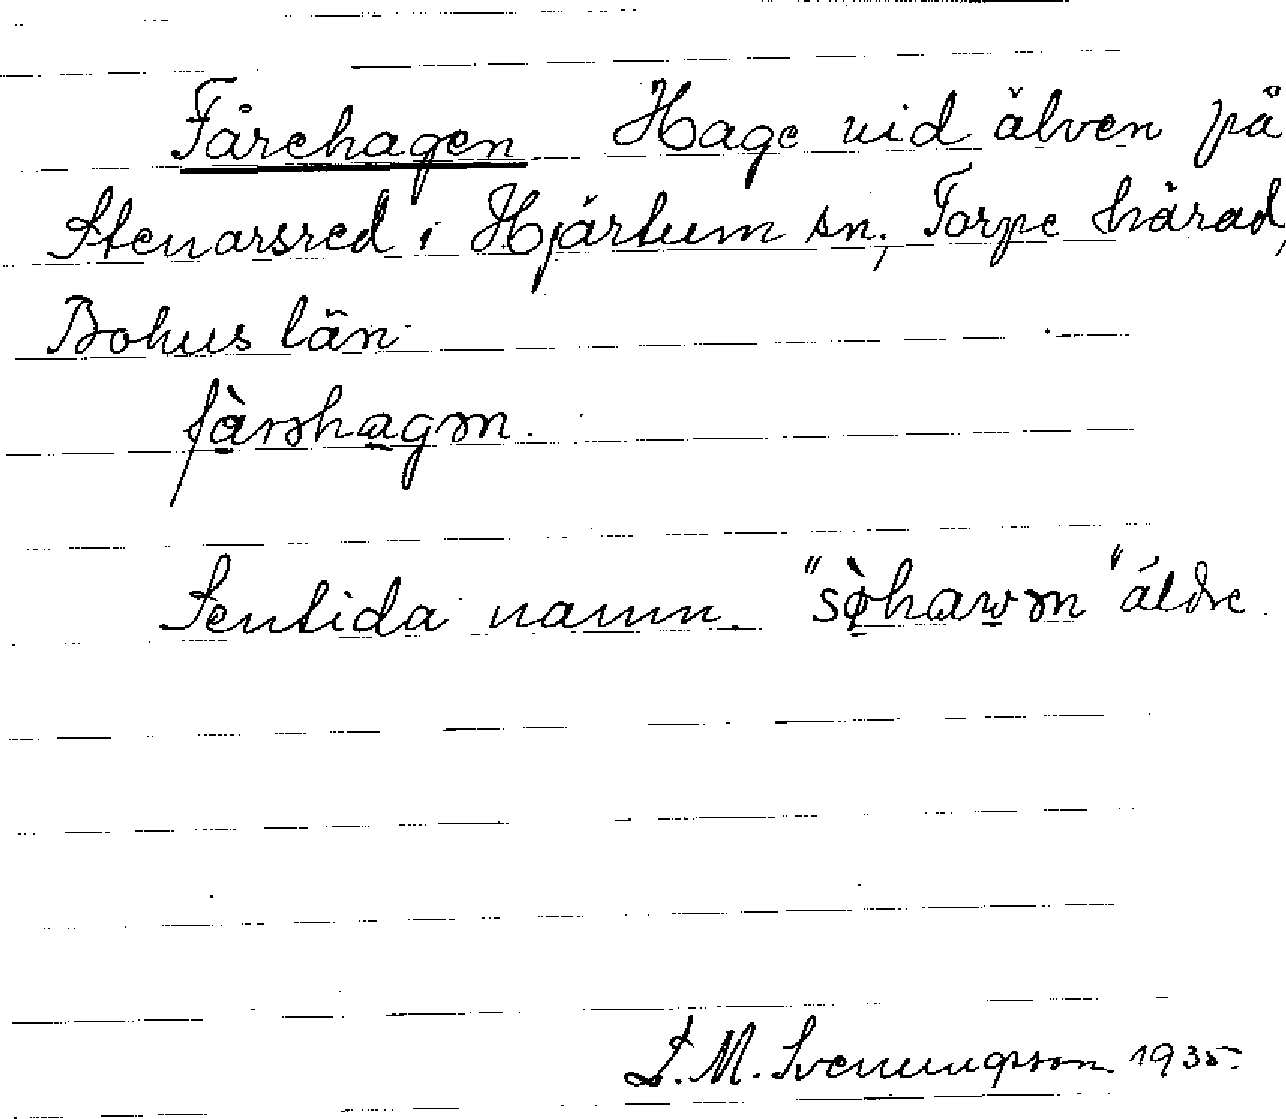 Fårehagen Hage vid älven på
Stenarsred i Hjärtum sn, Torpe härad,
Bohus län
fàrəhagən.
Sentida namn. "sø̀hawən" äldre.
S. M. Svenungsson 1935.